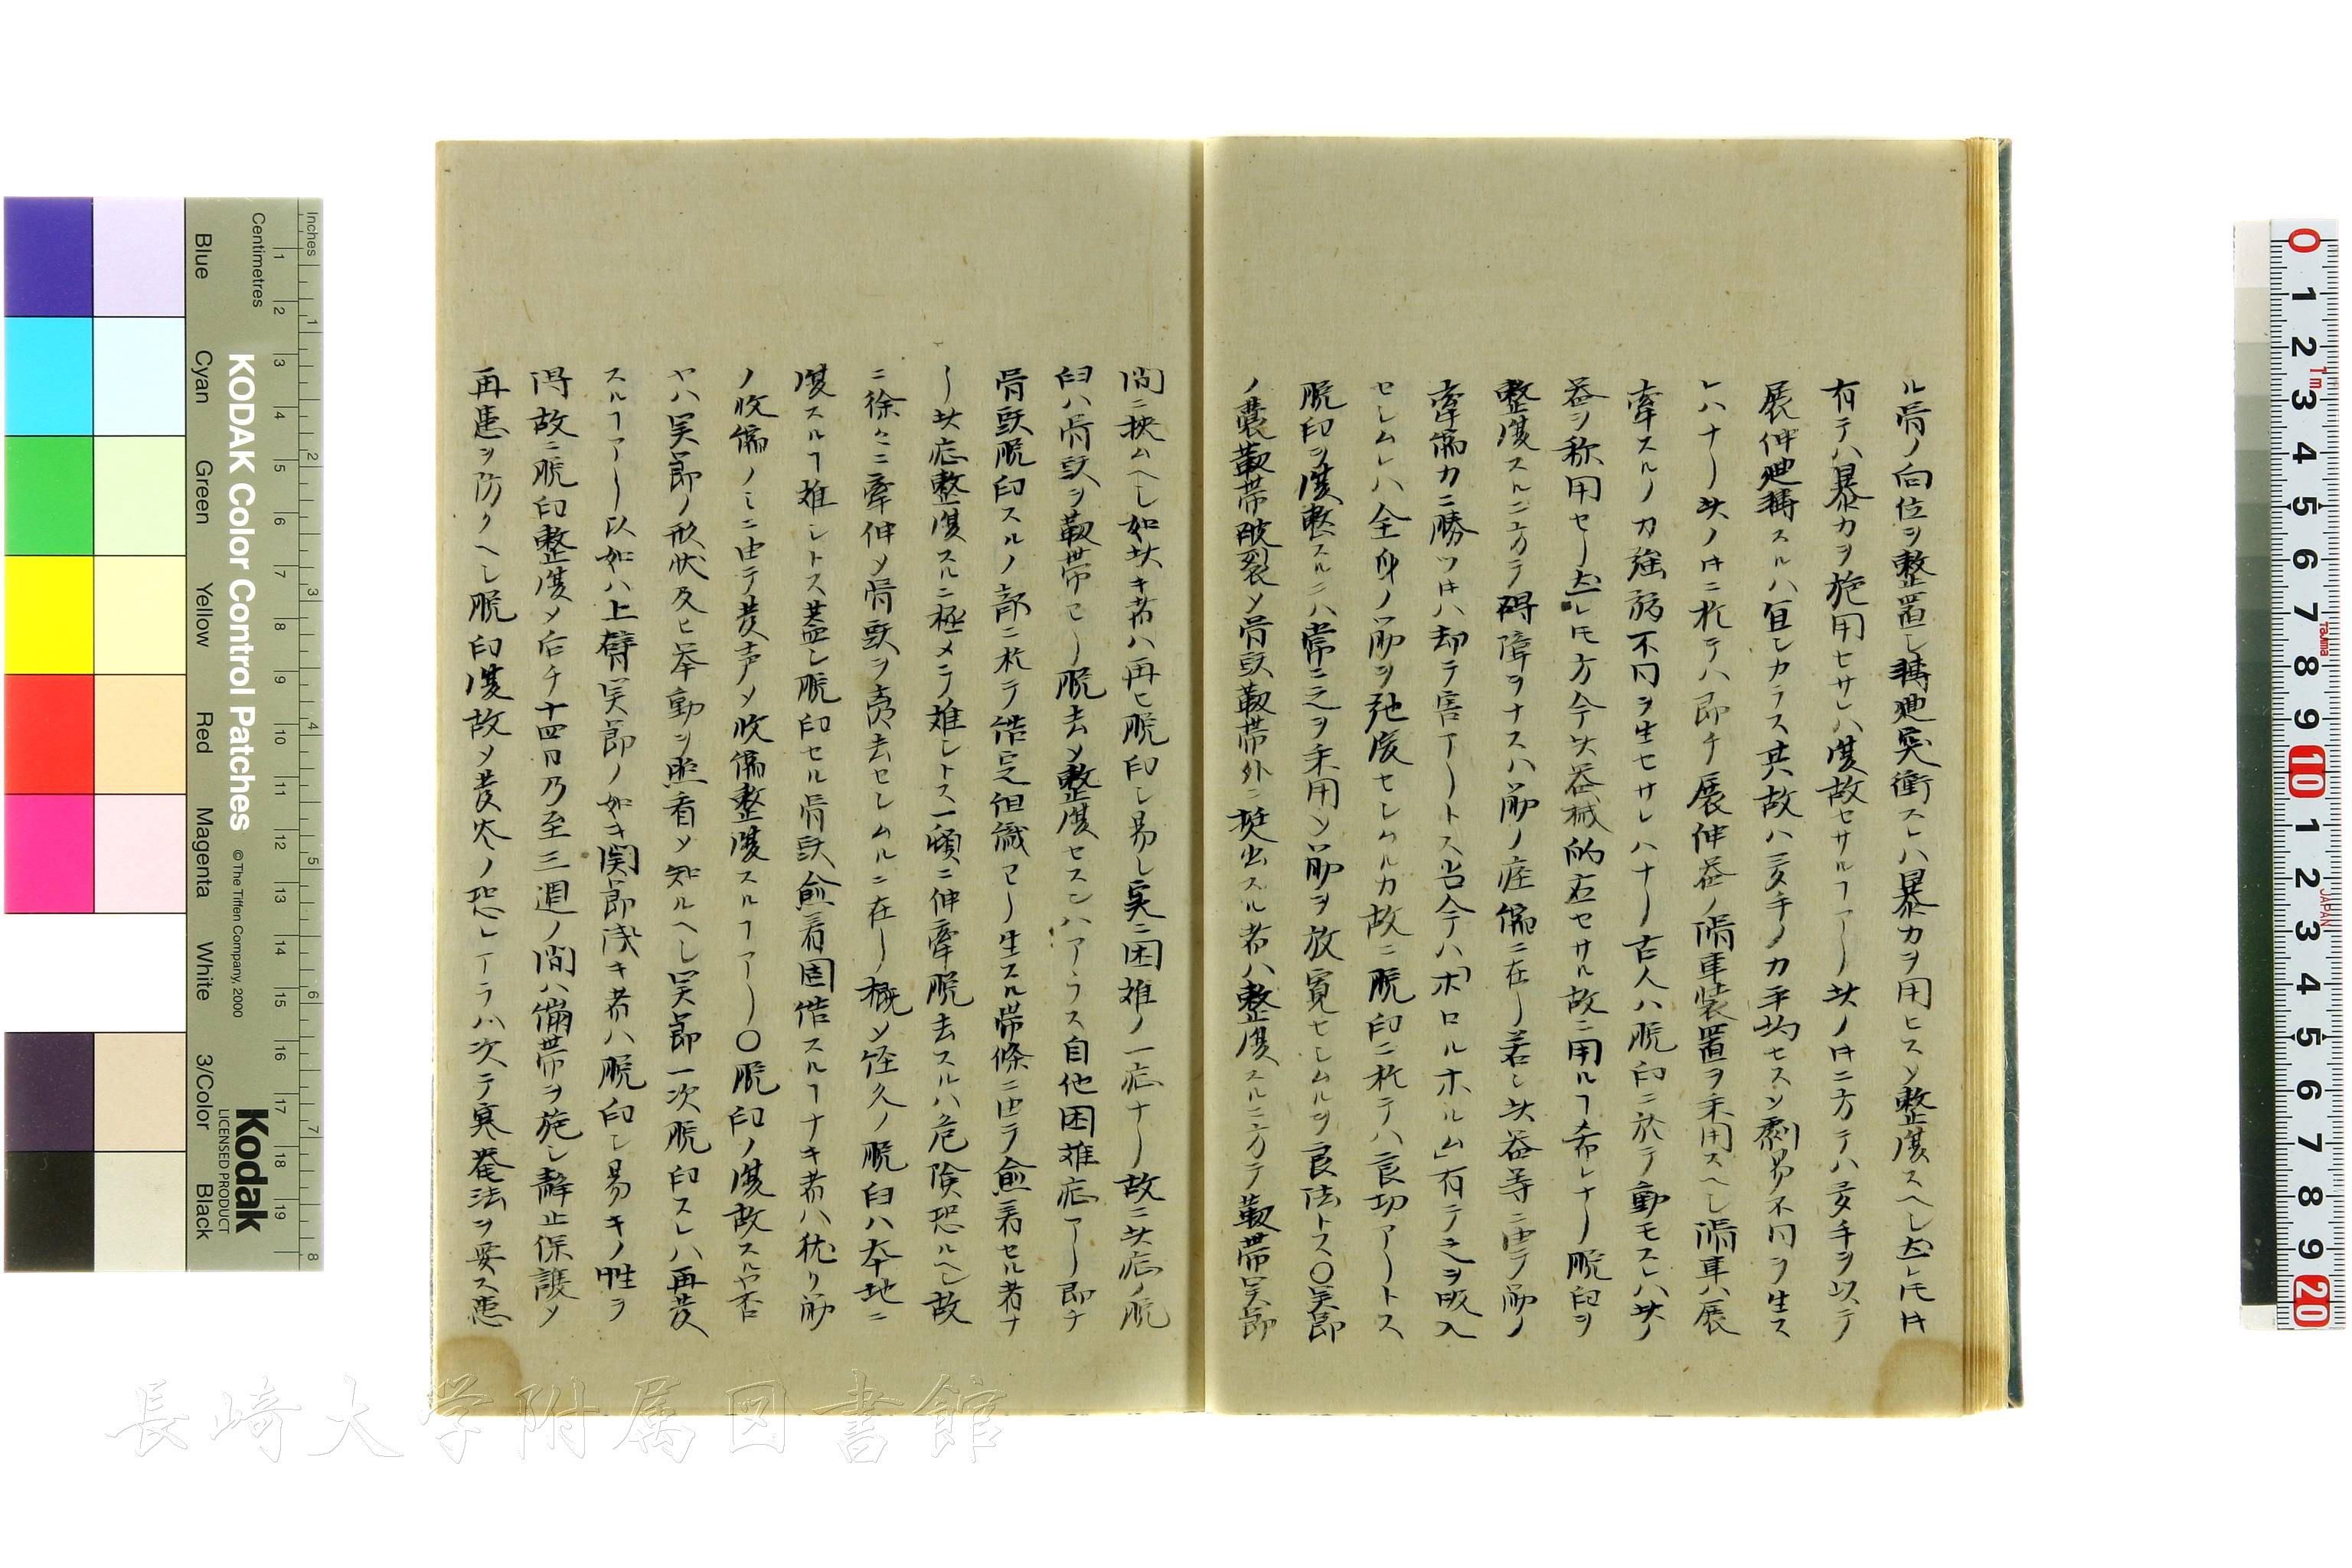 ル骨ノ向位ヲ整置し轉迴突衝スレハ暴力ヲ用ヒスメ整復スヘし𪜈レ𪜈㐧
有テハ暴力ヲ施用セサレハ復故セサルヿアリ此ノ㐧ニ方テハ多手ヲ以テ
展伸迴轉スルハ宜シカラス其故ハ多手ノ力平均セスメ劇易不同ヲ生ス
レハナリ此ノ㐧ニ於テハ即チ展伸器ノ滑車装置ヲ采用スヘし滑車ハ展
牽スルノ力強弱不同ヲ生セサレハナリ古人ハ脱臼ニ於テ動モスレハ此ノ
器ヲ称用セリ𪜈レ𪜈方今此器械的応セサル故ニ用ルヿ希レナリ脱臼ヲ
整復スルニ方テ碍障ヲナスハ筋ノ痙縮ニ在リ若し此器等ニ由テ筋ノ
牽縮力ニ勝ツ㐧ハ却テ害アリトス当今ハ「ホロルホルム」有テ之ヲ吸入
セしムレハ全身ノ筋ヲ弛廃セしムルカ故ニ脱臼ニ於テハ良功アリトス
脱臼ヲ復整スルニハ常ニ之ヲ采用メ筋ヲ放寛セしムルヲ良法トス〇関節
ノ嚢靱帯破裂メ骨頭靱帯外ニ挺出スル者ハ整復スルニ方テ靱帯関節
間ニ挾ムヘし如此キ者ハ再ヒ脱臼し易し実ニ困難ノ一症ナリ故ニ此症ノ脱
臼ハ骨頭ヲ靱帯ヨリ脱去メ整復セスンハアラス自他困難症アリ即チ
骨頭脱臼スルノ部ニ於テ借定組織ヨリ生スル帯條ニ由テ愈着セル者ナ
リ此症整復スルニ極メテ難しトス一頓ニ伸牽脱去スルハ危険恐ルヘし故
ニ徐々ニ牽伸メ骨頭ヲ𠫓去セしムルニ在リ概メ経久ノ脱臼ハ本地ニ
復スルヿ難しトス蓋し脱臼セル骨頭愈着固借スルヿナキ者ハ独リ筋
ノ收縮ノミニ由テ発声メ收縮整復スルヿアリ〇脱臼ノ復故スルヤ否
ヤハ関節ノ形状及ヒ挙動ヲ照看メ知ルヘし関節一次脱臼スレハ再発
スルヿアリ以如ハ上臂関節ノ如キ関節浅キ者ハ脱臼し易キノ性ヲ
得故ニ脱臼整復メ后チ十四日乃至三週ノ間ハ繃帯ヲ施し静止保護メ
再患ヲ防クヘし脱臼復故メ発炎ノ恐レアラハ次テ寒罨法ヲ要ス患
長崎大学附属図書館
KODAK Color Control Patches
© The Tiffen Company, 2000
Kodak
LICENSED PRODUCT
Inches
Centimetres
Blue Cyan Green Yellow Red Magenta White 3/Color Black